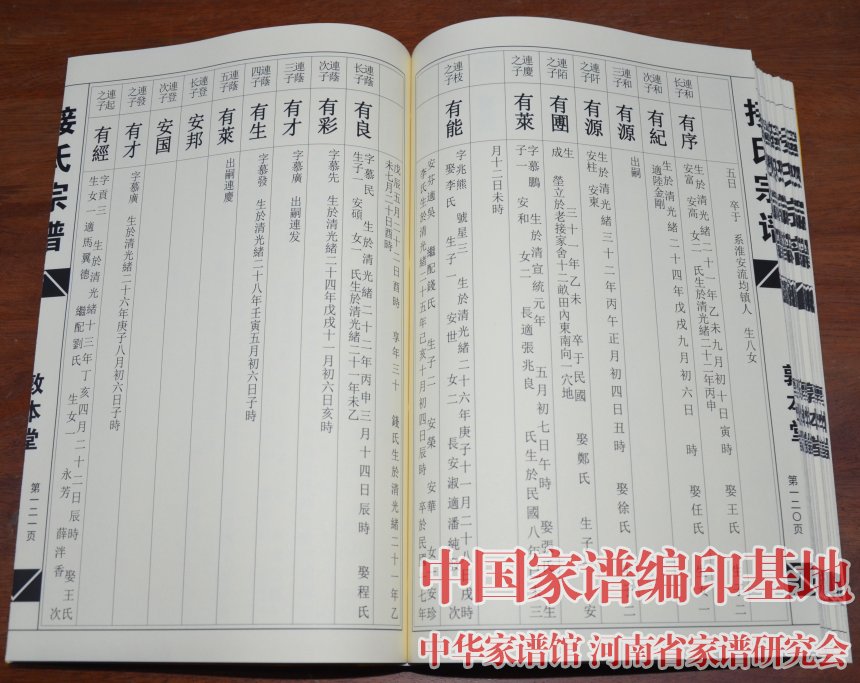 敦本堂
第一二〇页
五日 卒于 系淮安流均镇人 生八女
連和長子
有序
生於清光緒二十一年乙未九月初十日寅時 娶王氏
安富 安高 女二 氏生於清光緒二十二年丙申
連和次子
有紀
生於清光緒二十四年戊戌九月初六日 時 娶任氏
適陸金剛
連和三子
有源
出嗣
連阡之子
有源
生於清光緒三十二年丙午正月初四日丑時 娶徐氏
安柱 安東
連陌之子
有團
生 三十一年乙未 卒于民國 娶鄭氏 生子
成 塋立於老接家舍十二畝田內東南向一穴地
連慶之子
有萊
字慕鵬 生於清宣統元年 五月初七日午時
子一 安和 女二 長適張兆良 氏生於民國八年
月十二日未時
連枝之子
有能
字兆熊 號星三 生於清光緒二十六年庚子十一月二十八日戌時
娶李氏 生子一 安世 女二 長安淑適潘純
安芬適吳 繼配錢氏 生子二 安榮 安華 女
李氏生於清光緒二十五年己亥十月初四日辰時 卒於民
接氏宗谱
敦本堂
第一二一页
戊辰五月二十二日酉時 享年三十 錢氏生於清光緒二十一年乙
未七月二十日酉時
連蔭長子
有良
字慕民 生於清光緒二十二年丙申三月十四日辰時 娶程氏
生子一 安碩 女一 氏生於清光緒二十一年未乙
連蔭次子
有彩
字慕先 生於清光緒二十四年戊戌十一月初六日亥時
連蔭三子
有才
字慕廣 出嗣連发
連蔭四子
有生
字慕發 生於清光緒二十八年壬寅五月初六日子時
連蔭五子
有萊
出嗣連慶
連登長子
安邦
連登次子
安国
連發之子
有才
字慕廣 生於清光緒二十六年庚子八月初六日子時
連起之子
有經
字貢三 生於清光緒十三年丁亥四月二十二日辰時 娶王氏
生女一適馬翼德 繼配劉氏 生女一 永芳 薛泮香 次
中国家谱编印基地
中华家谱馆 河南省家谱研究会